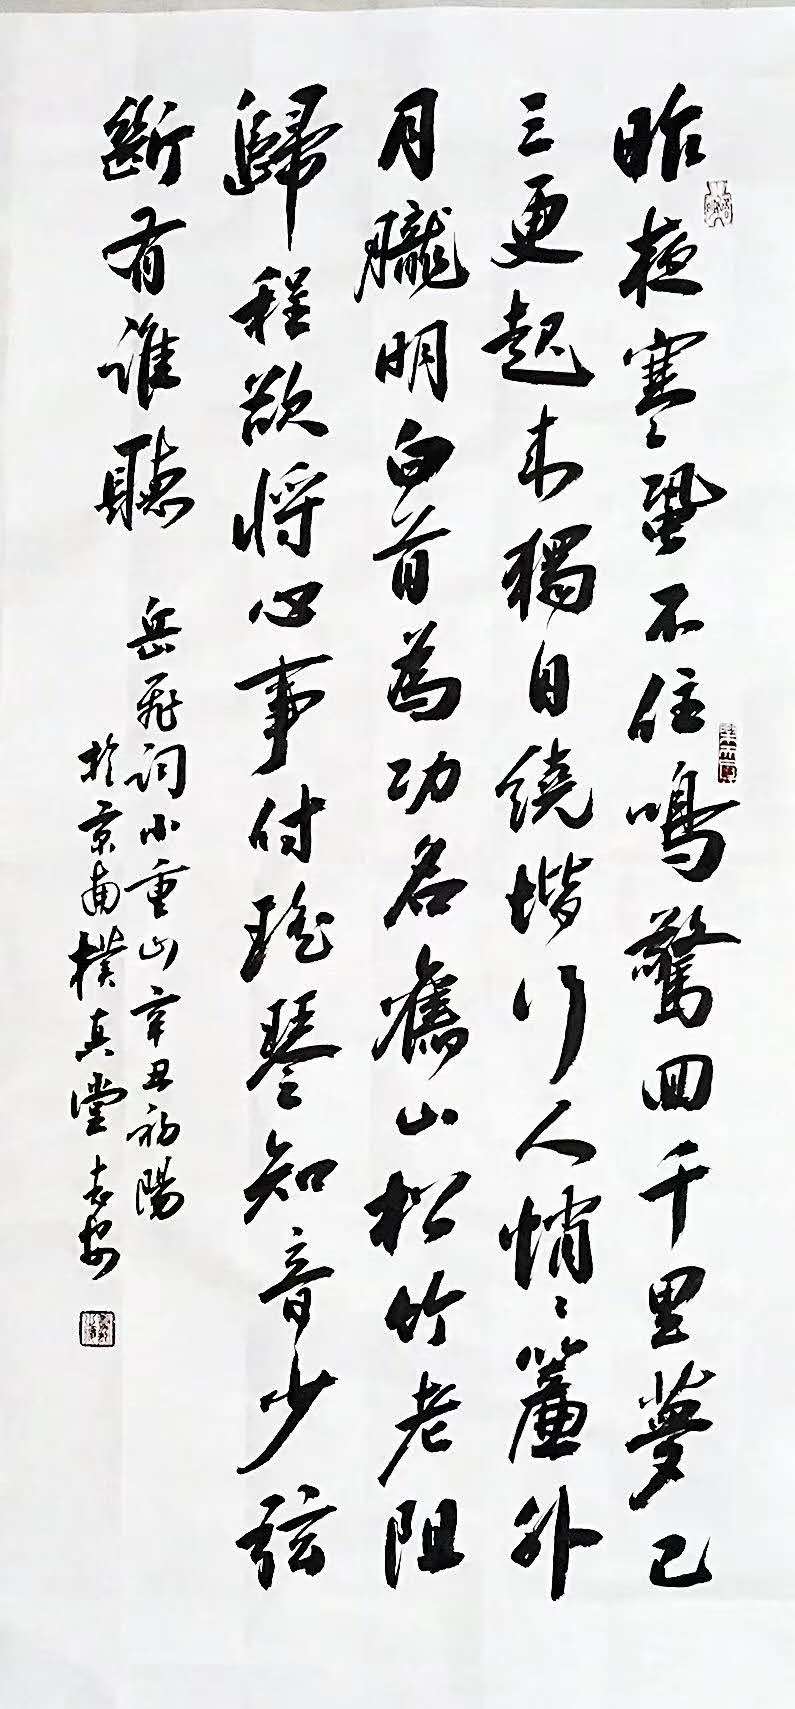 昨夜寒蛩不住鳴驚回千里夢已
三更起來獨自繞堦行人悄〻簾外
月朧明白首為功名舊山松竹老阻
歸程欲將心事付瑤琴知音少弦
斷有誰聽
岳飛詞小重山辛丑初陽
於京南樸真堂